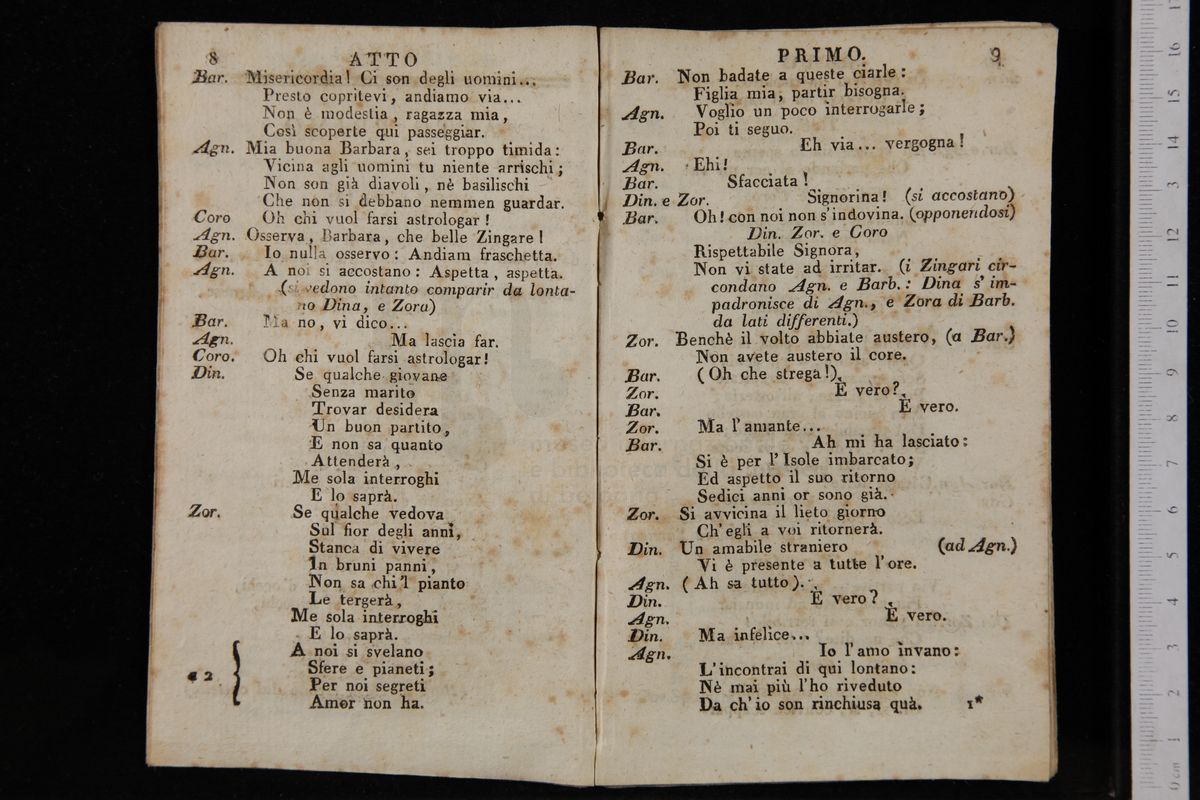 8 ATTO
Bar. Misericordia! Ci son degli uomini...
Presto copritevi, andiamo via...
Non è modestia, ragazza mia,
Così scoperte qui passeggiar.
Agn. Mia buona Barbara, sei troppo timida:
Vicina agli uomini tu niente arrischi;
Non son già diavoli, nè basilischi
Che non si debbano nemmen guardar.
Coro Oh chi vuol farsi astrologar!
Agn. Osserva, Barbara, che belle Zingare!
Bar. Io nulla osservo: Andiam fraschetta.
Agn. A noi si accostano: Aspetta, aspetta.
(si vedono intanto comparir da lonta-
no Dina, e Zora)
Bar. Ma no, vi dico...
Agn. Ma lascia far.
Coro. Oh chi vuol farsi astrologar!
Din. Se qualche giovane
Senza marito
Trovar desidera
Un buon partito,
E non sa quanto
Attenderà,
Me sola interroghi
E lo saprà.
Zor. Se qualche vedova
Sul fior degli anni,
Stanca di vivere
In bruni panni,
Non sa chi'l pianto
Le tergerà,
Me sola interroghi
E lo saprà.
a 2 { A noi si svelano
Sfere e pianeti;
Per noi segreti
Amor non ha.
PRIMO. 9
Bar. Non badate a queste ciarle:
Figlia mia, partir bisogna.
Agn. Voglio un poco interrogarle;
Poi ti seguo.
Bar. Eh via... vergogna!
Agn. Ehi!
Bar. Sfacciata!
Din. e Zor. Signorina! (si accostano)
Bar. Oh! con noi non s'indovina. (opponendosi)
Din. Zor. e Coro
Rispettabile Signora,
Non vi state ad irritar. (i Zingari cir-
condano Agn. e Barb.: Dina s'im-
padronisce di Agn., e Zora di Barb.
da lati differenti.)
Zor. Benchè il volto abbiate austero, (a Bar.)
Non avete austero il core.
Bar. (Oh che strega!)
Zor. È vero?
Bar. È vero.
Zor. Ma l'amante...
Bar. Ah mi ha lasciato:
Si è per l'Isole imbarcato;
Ed aspetto il suo ritorno
Sedici anni or sono già.
Zor. Si avvicina il lieto giorno
Ch'egli a voi ritornerà.
Din. Un amabile straniero (ad Agn.)
Vi è presente a tutte l'ore.
Agn. (Ah sa tutto).
Din. È vero?
Agn. È vero.
Din. Ma infelice...
Agn. Io l'amo invano:
L'incontrai di qui lontano:
Nè mai più l'ho riveduto
Da ch'io son rinchiusa quà. 1*